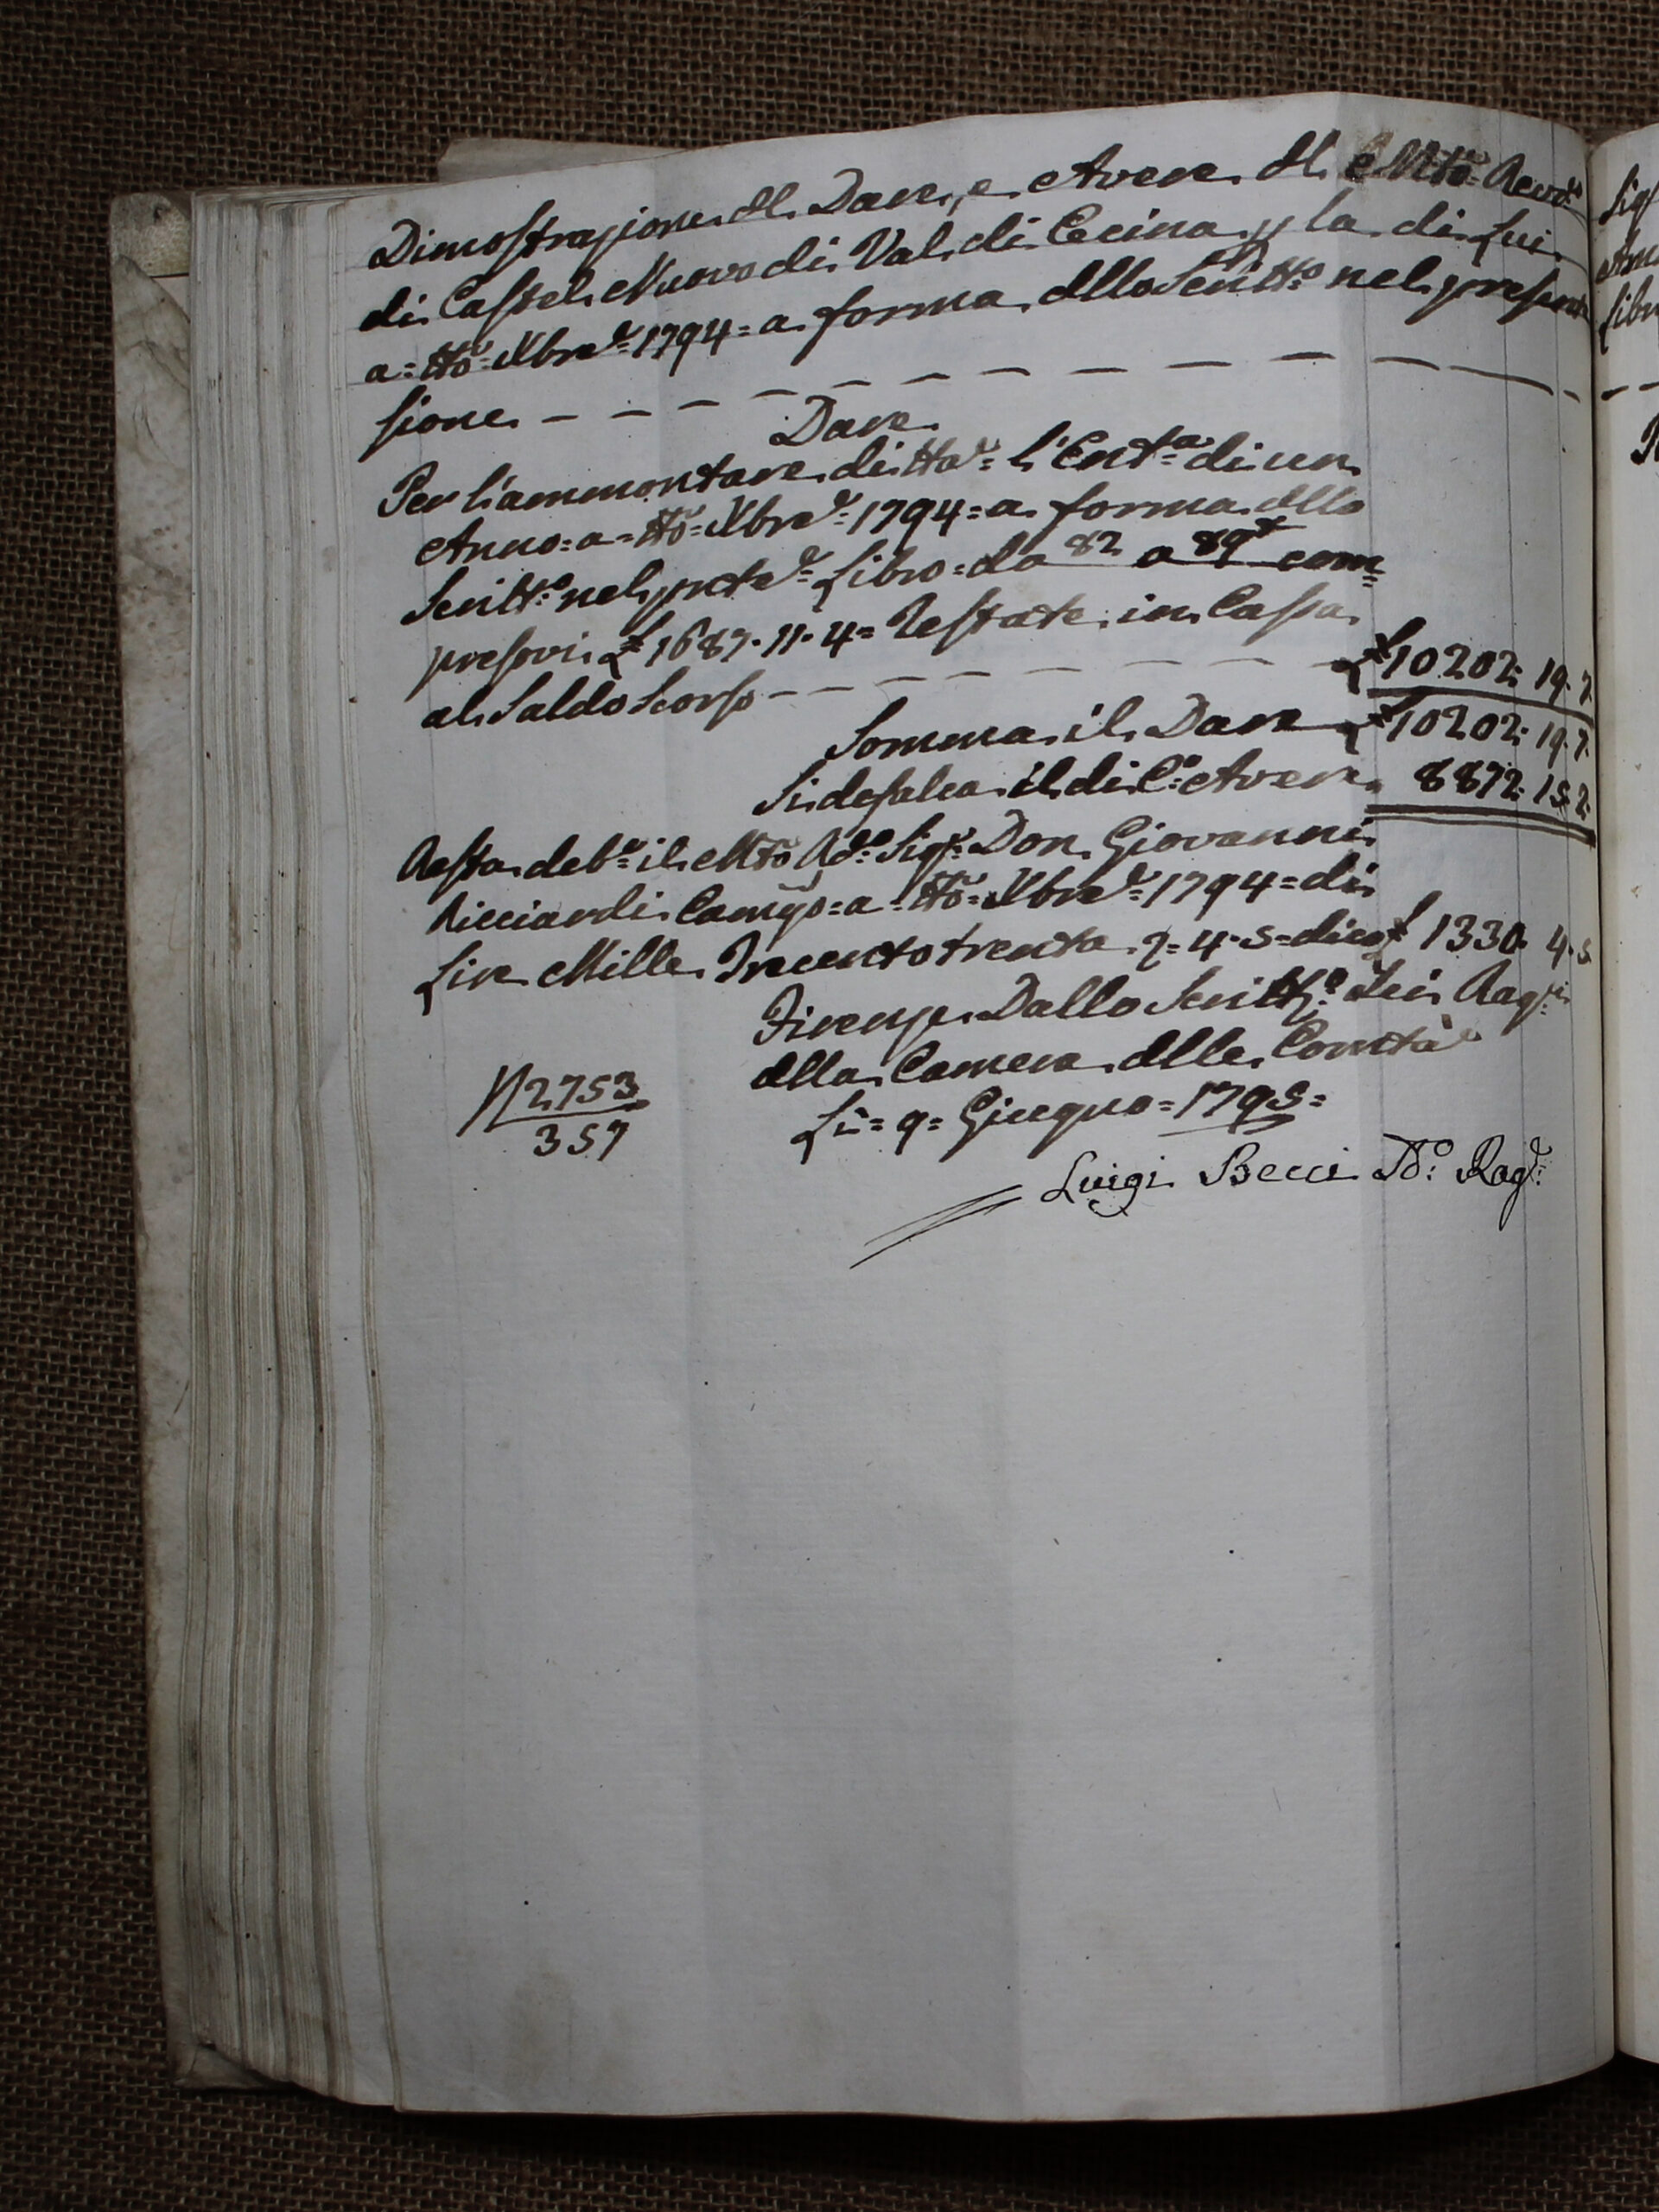 Dimostrazione dl. Dare, e Avere dl. Mto. Revdo.
di Castel Nuovo di Val di Cecina p. la di Lui
a = tto = Xbre = 1794 = a forma dllo Scritto nel presen
sione
Dare
Per l'ammontare di tta = l'Enta = di un
Anno = a = tto = Xbre = 1794 = a forma dllo
Scritto nel pnte = Libro = da 82 a 89 com=
presovi £ 1687. 11. 4 = restate in Cassa
al Saldo Scorso £ 10202: 19. 7.
Somma il Dare £ 10202: 19. 7.
Si defalca il di Co: Avere 8872: 15. 2:
Resta debe = il Mto Rdo: Sigr: Don Giovanni
Ricciardi Camgo = a = tto = Xbre = 1794 = di
Lire Mille Trecentotrenta 7 = 4. 5 = dico £ 1330. 4. 5
Firenze Dallo Scritto: dei Ragri:
dlla Camera dlle Comtà
Li = 9 = Giugno = 1795 =
N 2753
357
Luigi Becci Rag:
Sig
Am
Libr